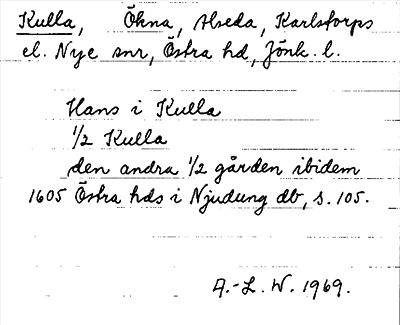 Kulla, Ökna, Alseda, Karlstorps
el. Nye snr, Östra hd, Jönk. l.
Hans i Kulla
1/2 Kulla
den andra 1/2 gården ibidem
1605 Östra hds i Njudung db, s. 105.
A.-L. W. 1969.